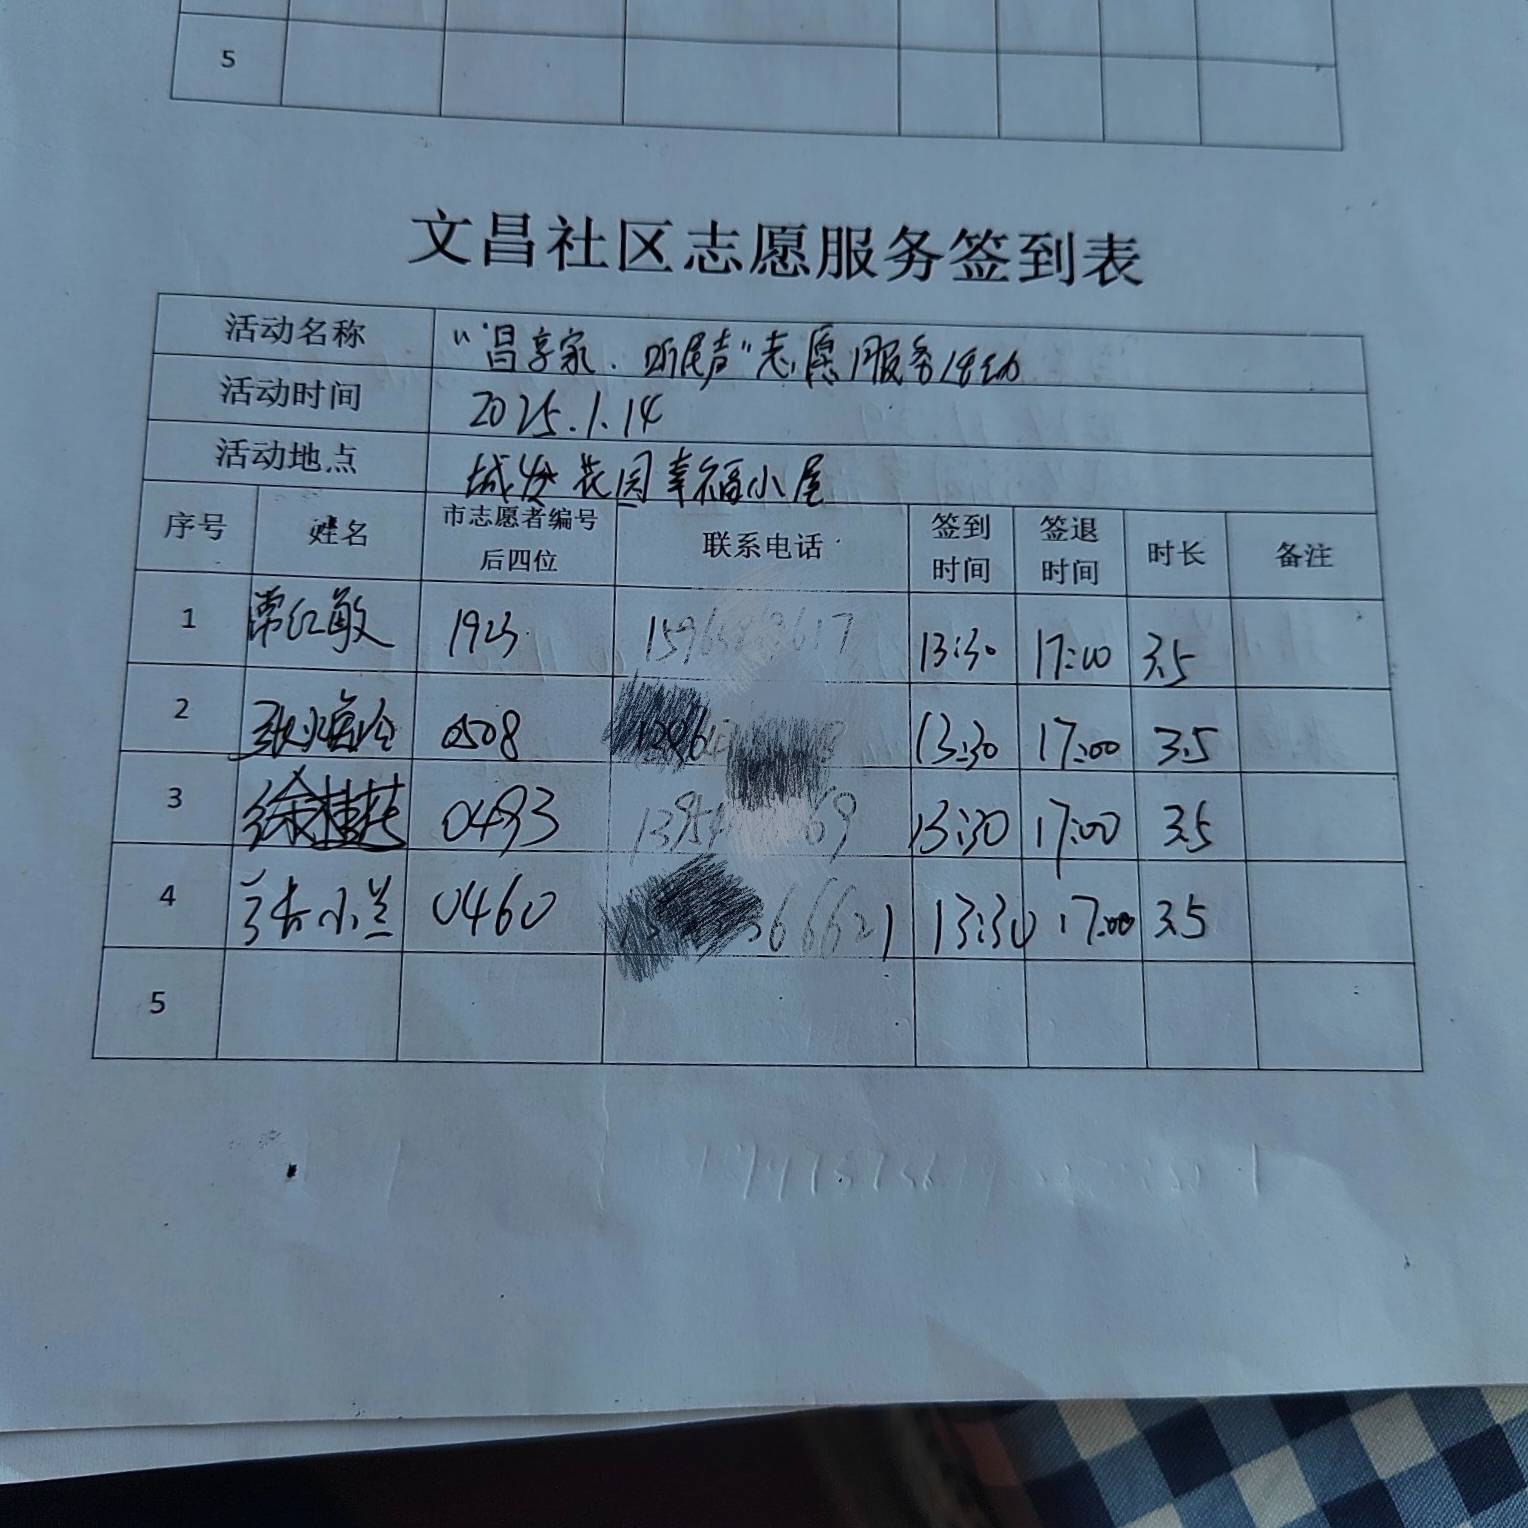 5
文昌社区志愿服务签到表
活动名称 "昌享家.听民声"志愿服务活动
活动时间 2025.1.14
活动地点 城发花园幸福小屋
序号 姓名 市志愿者编号后四位 联系电话 签到时间 签退时间 时长 备注
1 常红敏 1923 13:30 17:00 3.5
2 0508 13:30 17:00 3.5
3 徐桂英 0493 13:30 17:00 3.5
4 张小兰 0460 13:30 17:00 3.5
5